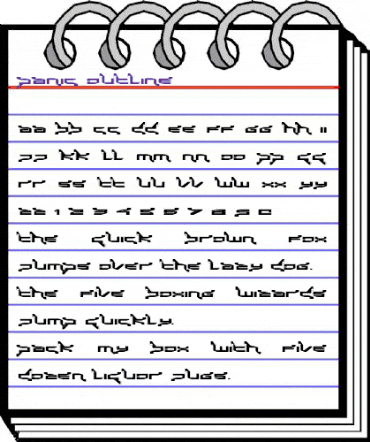 panic outline
aa bb cc dd ee ff gg hh ii
jj kk ll mm nn oo pp qq
rr ss tt uu vv ww xx yy
zz 1 2 3 4 5 6 7 8 9 0
the quick brown fox
jumps over the lazy dog.
the five boxing wizards
jump quickly.
pack my box with five
dozen liquor jugs.